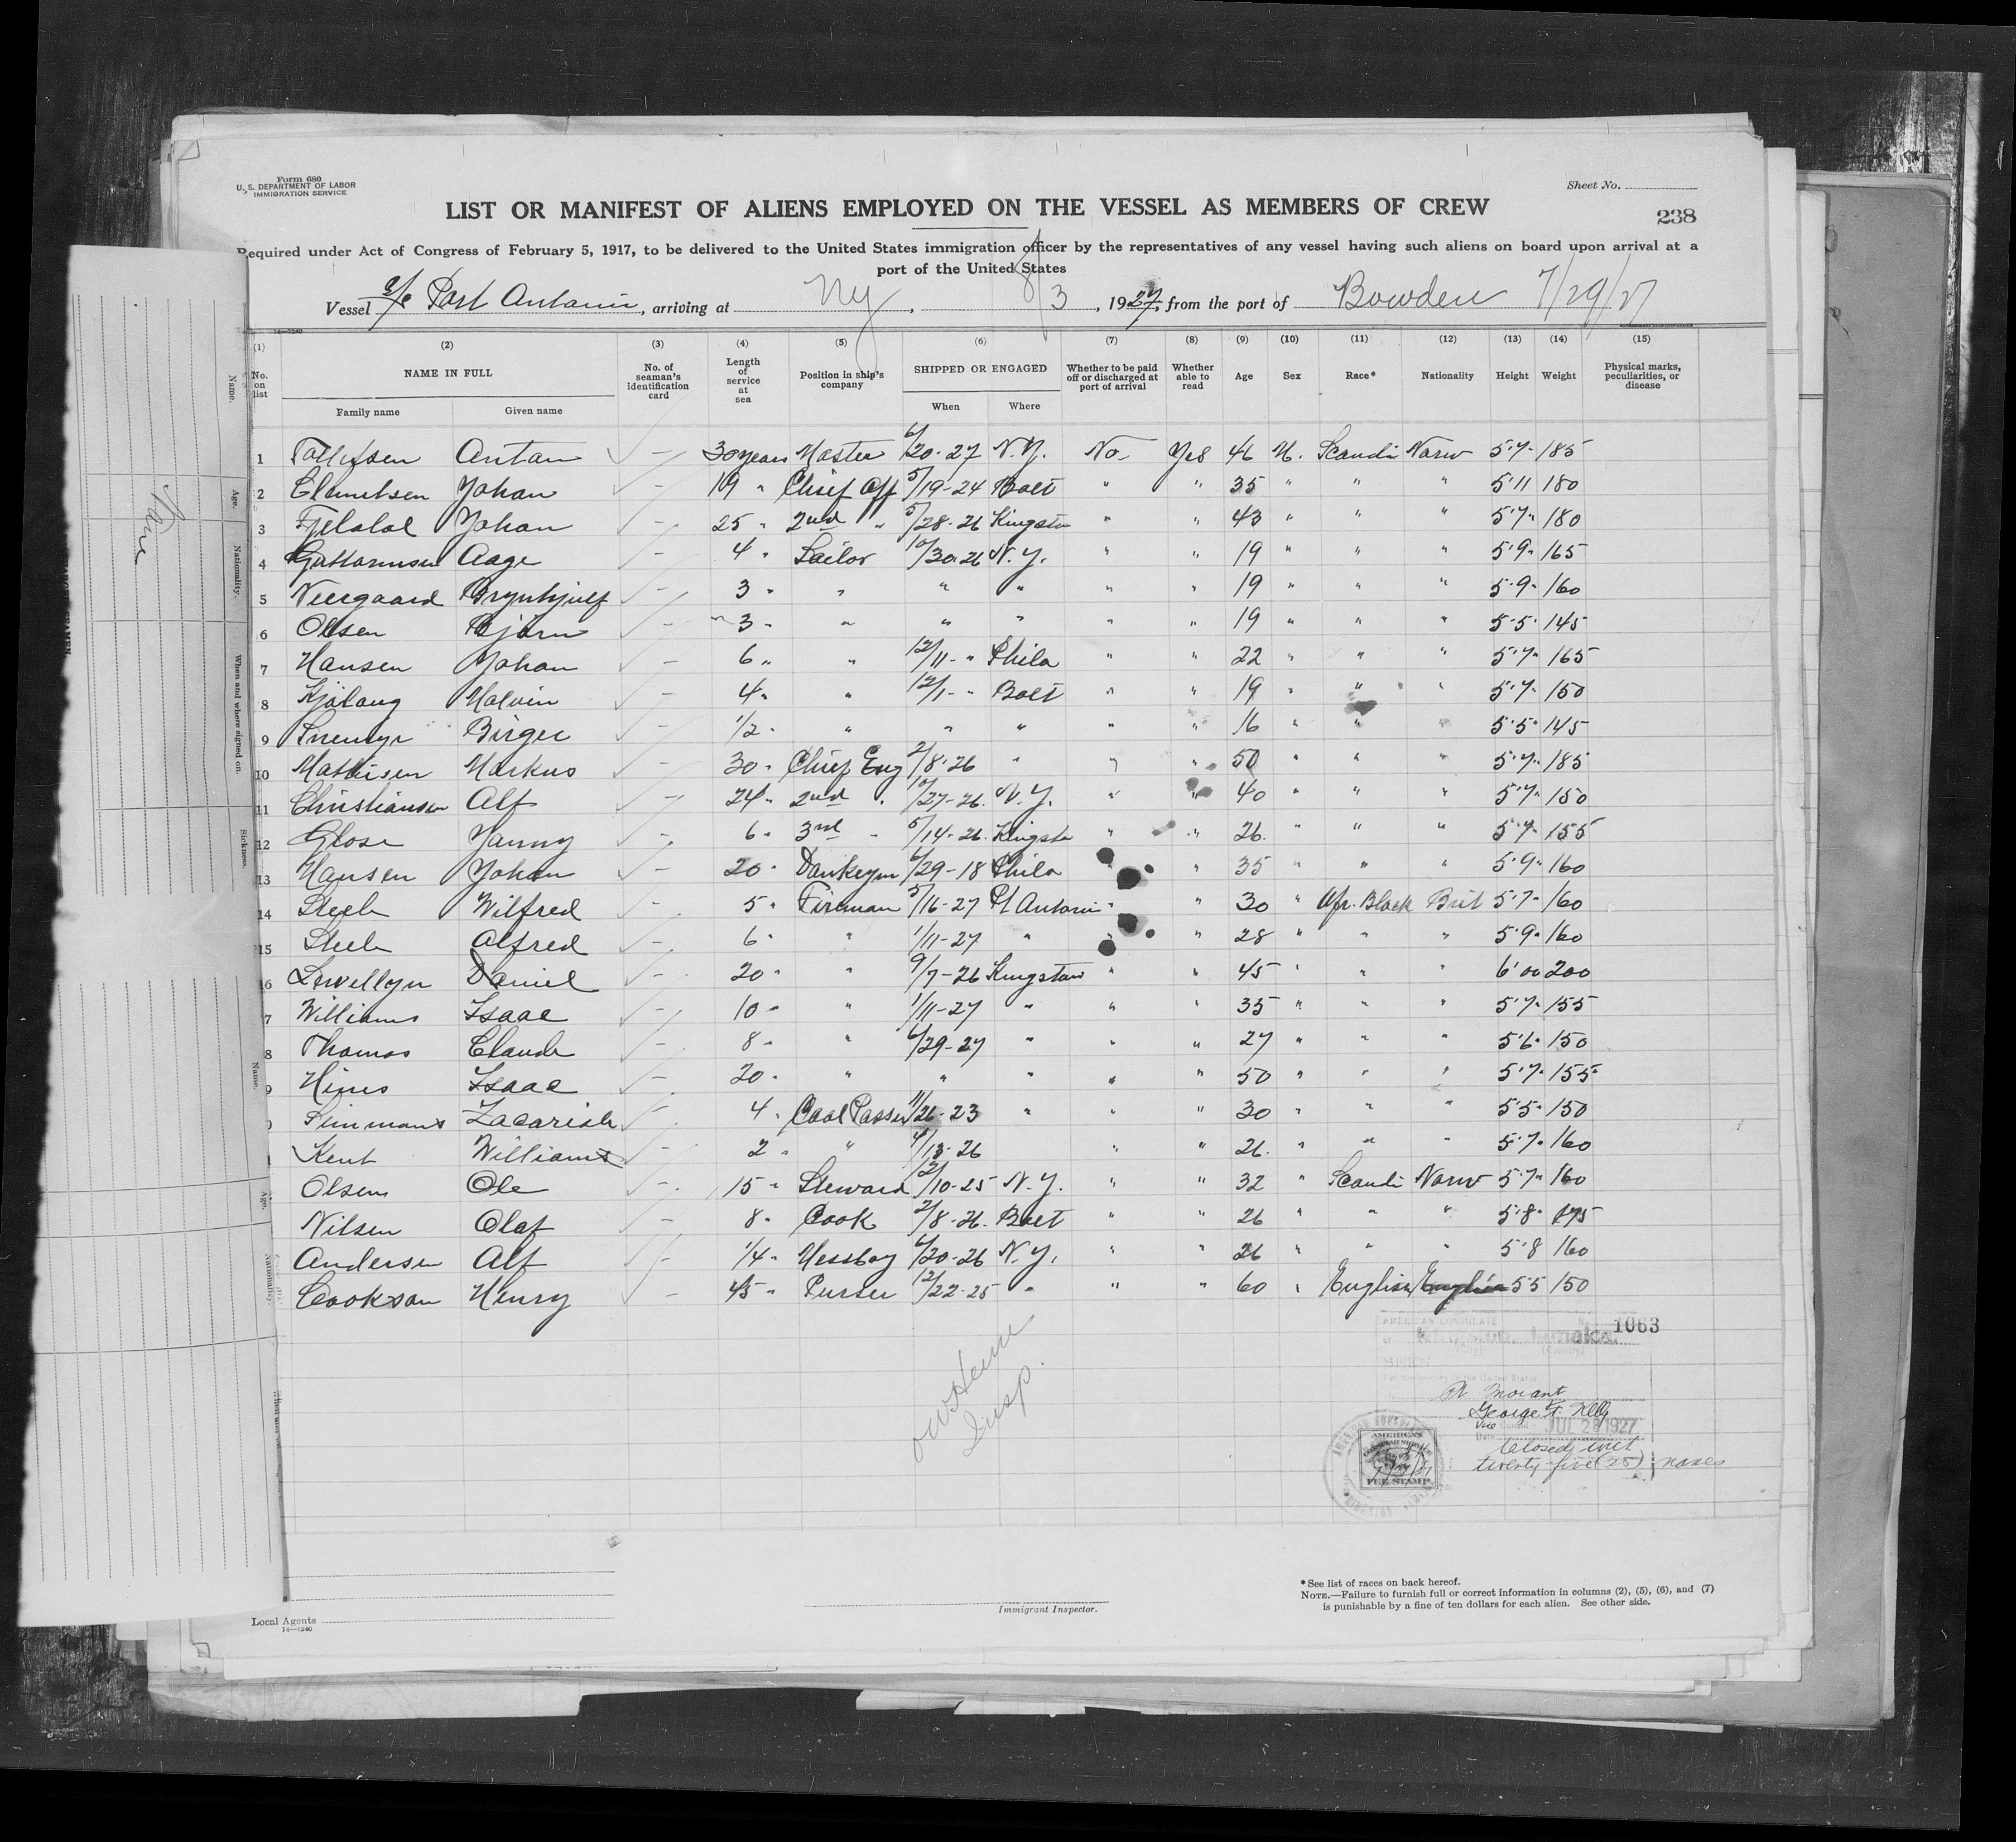 Form 680
U. S. DEPARTMENT OF LABOR
IMMIGRATION SERVICE
Sheet No.
LIST OR MANIFEST OF ALIENS EMPLOYED ON THE VESSEL AS MEMBERS OF CREW
238
Required under Act of Congress of February 5, 1917, to be delivered to the United States immigration officer by the representatives of any vessel having such aliens on board upon arrival at a
port of the United States
Vessel S/S Port Antonio, arriving at NY, 8/3, 1927, from the port of Bowden 7/29/27
14—1240
(1) (2) (3) (4) (5) (6) (7) (8) (9) (10) (11) (12) (13) (14) (15)
No. on list NAME IN FULL No. of seaman's identification card Length of service at sea Position in ship's company SHIPPED OR ENGAGED Whether to be paid off or discharged at port of arrival Whether able to read Age Sex Race* Nationality Height Weight Physical marks, peculiarities, or disease
Family name Given name When Where
1 Anton — 30 years Master 6/20-27 N.Y. No Yes 46 M. Scandi Norw 5'7" 185
2 Clemetsen Johan — 19 " Chief Off 5/19-24 Balt " " 35 " " " 5'11 180
3 Johan — 25 " 2nd " 5/28-26 Kingston " " 43 " " " 5'7" 180
4 Aage — 4 " Sailor 10/30-26 N.Y. " " 19 " " " 5'9" 165
5 Neergaard Brynhjulf — 3 " " " " " " 19 " " " 5'9" 160
6 Olsen Bjorn — 3 " " " " " " 19 " " " 5'5" 145
7 Hansen Johan — 6 " " 12/11- " Phila " " 22 " " " 5'7" 165
8 Malvin — 4 " " 12/1- " Balt " " 19 " " " 5'7" 150
9 Birger — 1/2 " " " " " " 16 " " " 5'5" 145
10 Mathisen Markus — 30 " Chief Eng 2/8-26 " " " 50 " " " 5'7" 185
11 Christiansen Alf — 24 " 2nd " 10/27-26 N.Y. " " 40 " " " 5'7" 150
12 Janny — 6 " 3rd " 5/14-26 Kingsto " " 26 " " " 5'7" 155
13 Hansen Johan — 20 " Donkeym 6/29-18 Phila " 35 " " " 5'9" 160
14 Steele Wilfred — 5 " Fireman 5/16-27 Pt Antonio " " 30 " Afr. Black Brit 5'7" 160
15 Steele Alfred — 6 " " 1/11-27 " " " 28 " " " 5'9" 160
16 Lewellyn Daniel — 20 " " 9/7-26 Kingston " " 45 " " " 6'00 200
7 Williams Isaac — 10 " " 1/11-27 " " " 35 " " " 5'7" 155
8 Thomas Claude — 8 " " 6/29-27 " " " 27 " " " 5'6" 150
9 Hines Isaac — 20 " " " " " " 50 " " " 5'7" 155
Simmons Zacariah — 4 " Coal Passer 11/26-23 " " " 30 " " " 5'5" 150
Kent Williams — 2 " " 4/13-26 " " 26 " " " 5'7" 160
Olsen Ole — 15 " Steward 12/10-25 N.Y. " " 32 " Scandi Norw 5'7" 160
Nilsen Olaf — 8 " Cook 2/8-26 Balt " " 26 " " " 5'8" 175
Andersen Alf — 1/4 " Messboy 6/20-26 N.Y. " " 26 " " " 5'8 160
Cookson Henry — 45 " Purser 12/22-25 " " " 60 " English English 55 150
AMERICAN CONSULATE
Kingston, Jamaica. 1063
Pt Morant
George F. Kelly
Vice Consul
JUL 29 1927
Closed with
twenty-five (25) names
AMERICAN
FEE STAMP
Insp.
Immigrant Inspector.
Local Agents
14—1240
*See list of races on back hereof.
NOTE.—Failure to furnish full or correct information in columns (2), (5), (6), and (7)
is punishable by a fine of ten dollars for each alien. See other side.
Name.
Age.
Nationality.
When and where signed on.
Sickness.
Name.
Age.
Nationality.